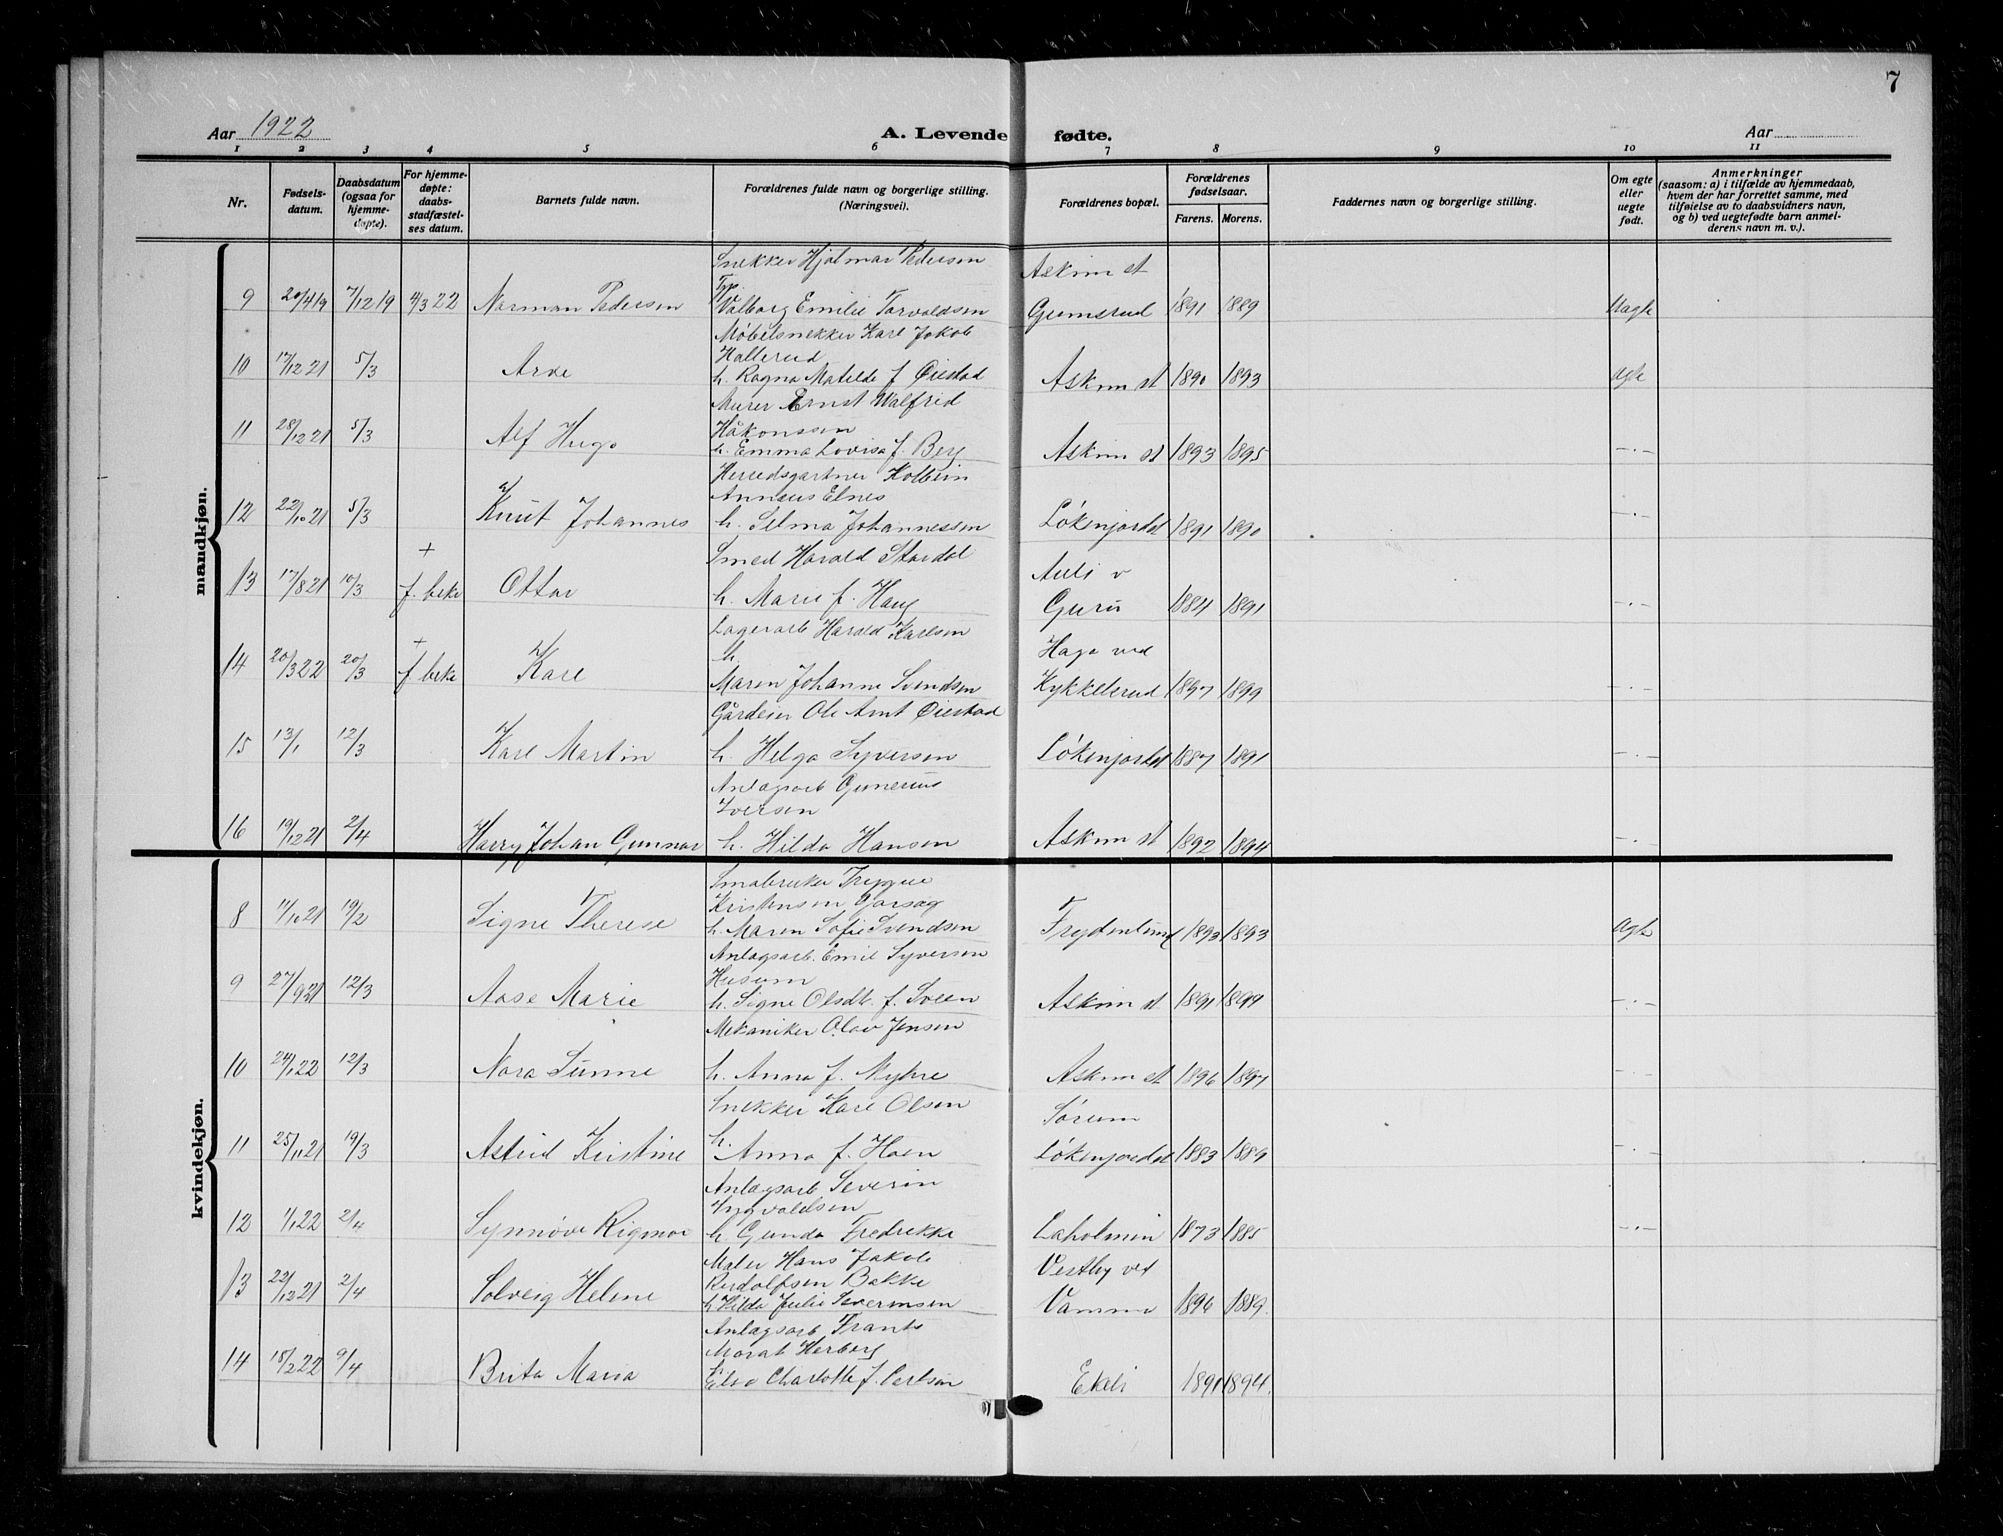 7
Aar 1922 A. Levende fødte. Aar
1 2 3 4 5 6 7 8 9 10 11
Nr. Fødselsdatum. Daabsdatum (ogsaa for hjemmedøpte). For hjemmedøpte: daabsstadfæstelses datum. Barnets fulde navn. Forældrenes fulde navn og borgerlige stilling. (Næringsvei). Forældrenes bopæl. Forældrenes fødselsaar. Farens. Morens. Faddernes navn og borgerlige stilling. Om egte eller uegte født. Anmerkninger (saasom: a) i tilfælde av hjemmedaab, hvem der har forrettet samme, med tilføielse av to daabsvidners navn, og b) ved uegtefødte barn anmelderens navn m. v.).
mandkjøn.
Snekker Hjalmar Pedersen Askim st
9 20/4 19 7/12 19 4/3 22 Norman Pedersen Valborg Emilie Torvaldsen Grimsrud 1891 1889 Uagte
Møbelsnekker Karl Jakob
Hallerud
10 17/12 21 5/3 Arve h. Ragna Matilde f Øiestad Askim st 1890 1893 Agte
Murer Ernst Walfrid
Håkonssen
11 28/12 21 5/3 Alf Hugo h. Emma Lovisa f. Berg Askim st 1893 1895 -"-
Herredsgartner Kolbein
Annæus Elnes
12 22/10 21 5/3 Knut Johannes h. Selma Johannessen Løkenjordet 1891 1890 -"-
+ Smed Harald Stordal Auli v
13 17/8 21 10/3 f. beke Ottar h. Marie f. Haug Guru 1884 1891 -"-
+ Lagerarb Harald Karlsen Haga ved
14 20/3 22 20/3 f beke Kare h. Maren Johanne Svendsen Kykkelsrud 1897 1899 -"-
Gårdeier Ole Amt Øiestad
15 13/1 12/3 Karl Martin h. Helga Syversen Løkenjordet 1887 1891 -"-
Anlagsarb Gunerius
Iversen
16 19/12 21 2/4 Harry Johan Gunnar h. Hilda Hansen Askim st 1892 1894 -"-
kvindekjøn.
Småbruker Trygve
Kristensen
8 11/10 21 19/2 Signe Therese h. Maren Sofie Svendsen Frydenlund 1893 1893 Agte
Anlagsarb. Emil Syversen
Husum
9 27/9 21 12/3 Aase Marie h. Signe Olsdt. f. Sveen Askim st 1891 1899 -"-
Mekaniker Olav Jensen
10 24/1 22 12/3 Nora Sunne h. Anna f. Myhre Askim st 1896 1897 -"-
Snekker Karl Olsen Sørum
11 25/11 21 19/3 Astrid Kristine h. Anna f. Hoen Løkenjordet 1883 1889 -"-
Anlagsarb Severin
Sygvaldsen
12 1/1 22 2/4 Synnøve Rigmor h. Gunda Fredrikke Laholmen 1873 1885 -"-
Maler Hans Jakob Vestby ved
Rudolfsen Bakke
13 22/12 21 2/4 Solveig Helene h Hilda Julie Severinsen Vamma 1896 1889.
Anlagsarb Frants
Morat Herberg
14 18/2 22 9/4 Brita Maria h. Elsa Charlotte f. Carlson Ekeli 1891 1894.